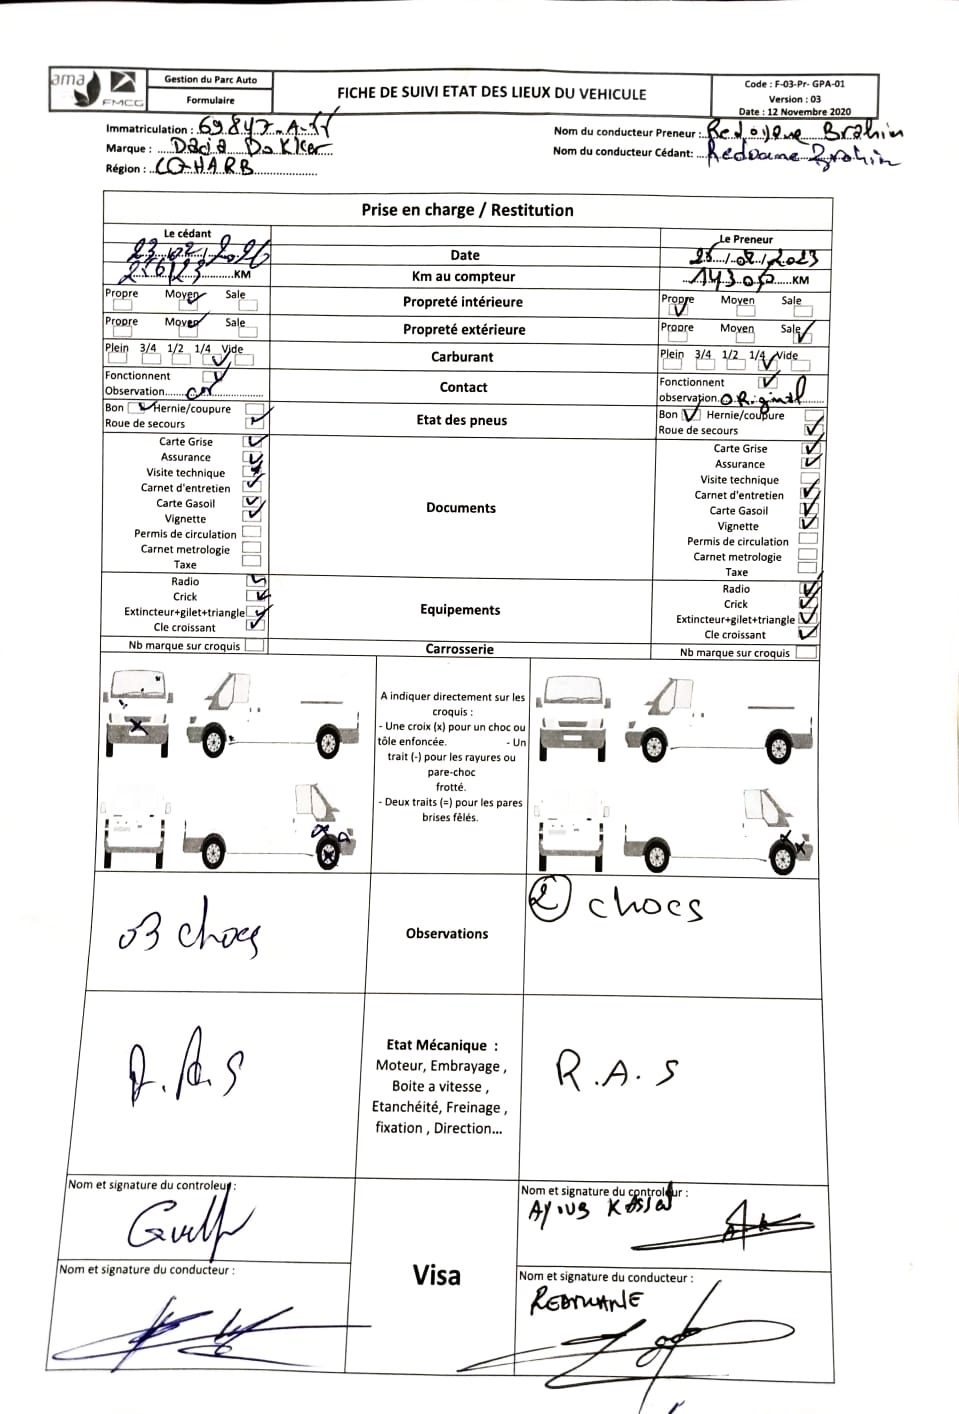 ama
FMCG
Gestion du Parc Auto
Formulaire
FICHE DE SUIVI ETAT DES LIEUX DU VEHICULE
Code : F-03-Pr- GPA-01
Version : 03
Date : 12 Novembre 2020
Immatriculation : 69847-A-
Marque : Dacia Dokker
Région : HARB
Nom du conducteur Preneur : Redouane Brahim
Nom du conducteur Cédant: Redouane Brahim
Prise en charge / Restitution
Le cédant
Date
Le Preneur
/02/2023
KM
Km au compteur
KM
Propre Moyen Sale
Propreté intérieure
Propre Moyen Sale
Propre Moyen Sale
Propreté extérieure
Propre Moyen Sale
Plein 3/4 1/2 1/4 Vide
Carburant
Plein 3/4 1/2 1/4 Vide
Fonctionnent
Observation
Contact
Fonctionnent
observation. ORiginal
Bon Hernie/coupure
Roue de secours
Etat des pneus
Bon Hernie/coupure
Roue de secours
Carte Grise
Assurance
Visite technique
Carnet d'entretien
Carte Gasoil
Vignette
Permis de circulation
Carnet metrologie
Taxe
Documents
Carte Grise
Assurance
Visite technique
Carnet d'entretien
Carte Gasoil
Vignette
Permis de circulation
Carnet metrologie
Taxe
Radio
Crick
Extincteur+gilet+triangle
Cle croissant
Equipements
Radio
Crick
Extincteur+gilet+triangle
Cle croissant
Nb marque sur croquis
Carrosserie
Nb marque sur croquis
A indiquer directement sur les
croquis :
- Une croix (x) pour un choc ou
tôle enfoncée. - Un
trait (-) pour les rayures ou
pare-choc
frotté.
- Deux traits (=) pour les pares
brises fêlés.
03 chocs
Observations
2 chocs
R.A.S
Etat Mécanique :
Moteur, Embrayage ,
Boite a vitesse ,
Etanchéité, Freinage ,
fixation , Direction...
R.A.S
Nom et signature du controleur :
Nom et signature du conducteur :
Visa
Nom et signature du controleur :
Nom et signature du conducteur :
REDOUANE